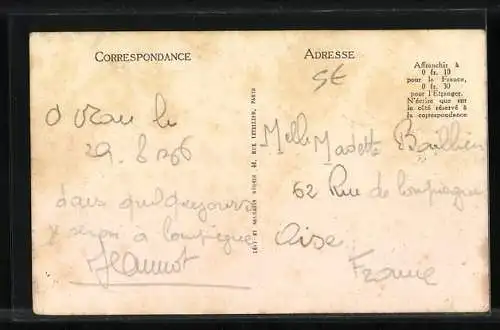 CORRESPONDANCE
ADRESSE
Affranchir à
0 fr. 10
pour la France,
0 fr. 30
pour l'Etranger.
N'écrire que sur
le côté réservé à
la correspondance
Oran le
29. 8
dans quelques jours
je serai à Compiègne
Jeannot
LEVY ET NEURDEIN RÉUNIS · 44, RUE LETELLIER, PARIS
Melle
62 Rue de Compiègne
Oise
France